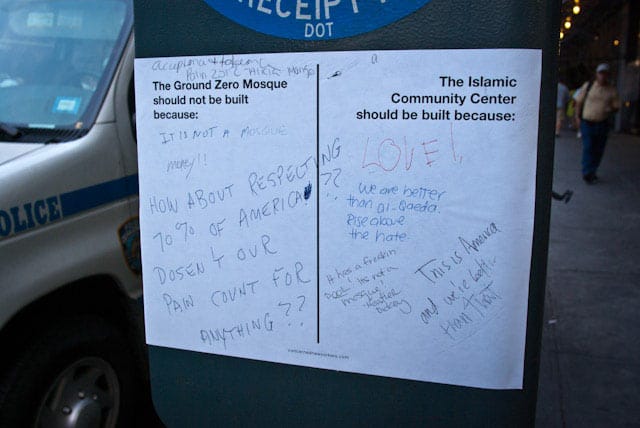 RECEIPT
DOT
POLICE
The Ground Zero Mosque
should not be built
because:
IT IS NOT A MOSQUE
money!!
HOW ABOUT RESPECTING
70% OF AMERICA? ??
DOSEN 4 OUR
PAIN COUNT FOR
ANYTHING??
The Islamic
Community Center
should be built because:
LOVE!
We are better
than Al-Qaeda.
Rise above
the hate.
It has a freakin
pool. Its not a
mosque!
This is America
and we're better
than that